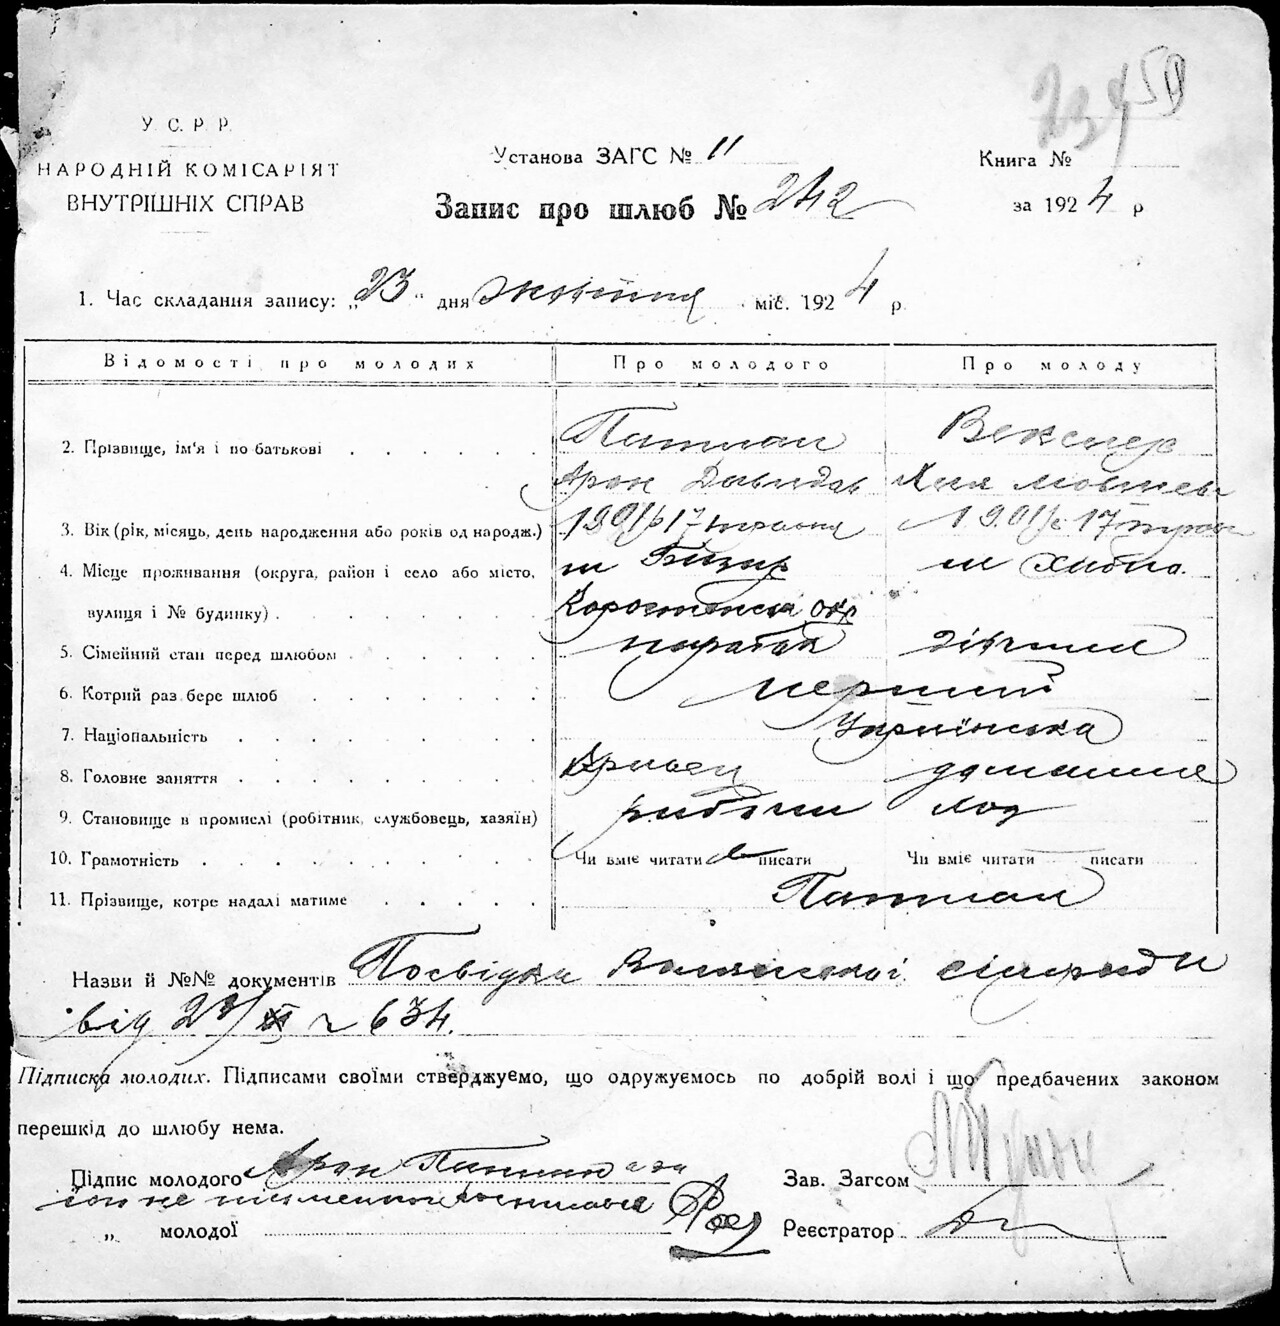 У. С. Р. Р.
НАРОДНІЙ КОМІСАРІЯТ
ВНУТРІШНІХ СПРАВ
Установа ЗАГС № 11
Книга №
Запис про шлюб № 242
за 1924 р
1. Час складання запису: „23" дня жовтня міс. 1924 р.
Відомості про молодих
Про молодого
Про молоду
2. Прізвище, ім'я і по батькові
Патлах
Векслер
Арон Давидов
Хая
3. Вік (рік, місяць, день народження або років од народж.)
1901 р 17 травня
1901 р 17
4. Місце проживання (округа, район і село або місто,
вулиця і № будинку)
м Базар
м
Коростенськ окр
5. Сімейний стан перед шлюбом
парубок
дівчина
6. Котрий раз бере шлюб
перший
7. Національність
8. Головне заняття
домашня
9. Становище в промислі (робітник, службовець, хазяїн)
10. Грамотність
Чи вміє читати писати
Чи вміє читати писати
11. Прізвище, котре надалі матиме
Патлах
Назви й №№ документів Посвідка сільради
від 634.
Підписка молодих. Підписами своїми стверджуємо, що одружуємось по добрій волі і що предбачених законом
перешкід до шлюбу нема.
Підпис молодого Арон Патлах а за
Зав. Загсом
„ молодої
Реєстратор